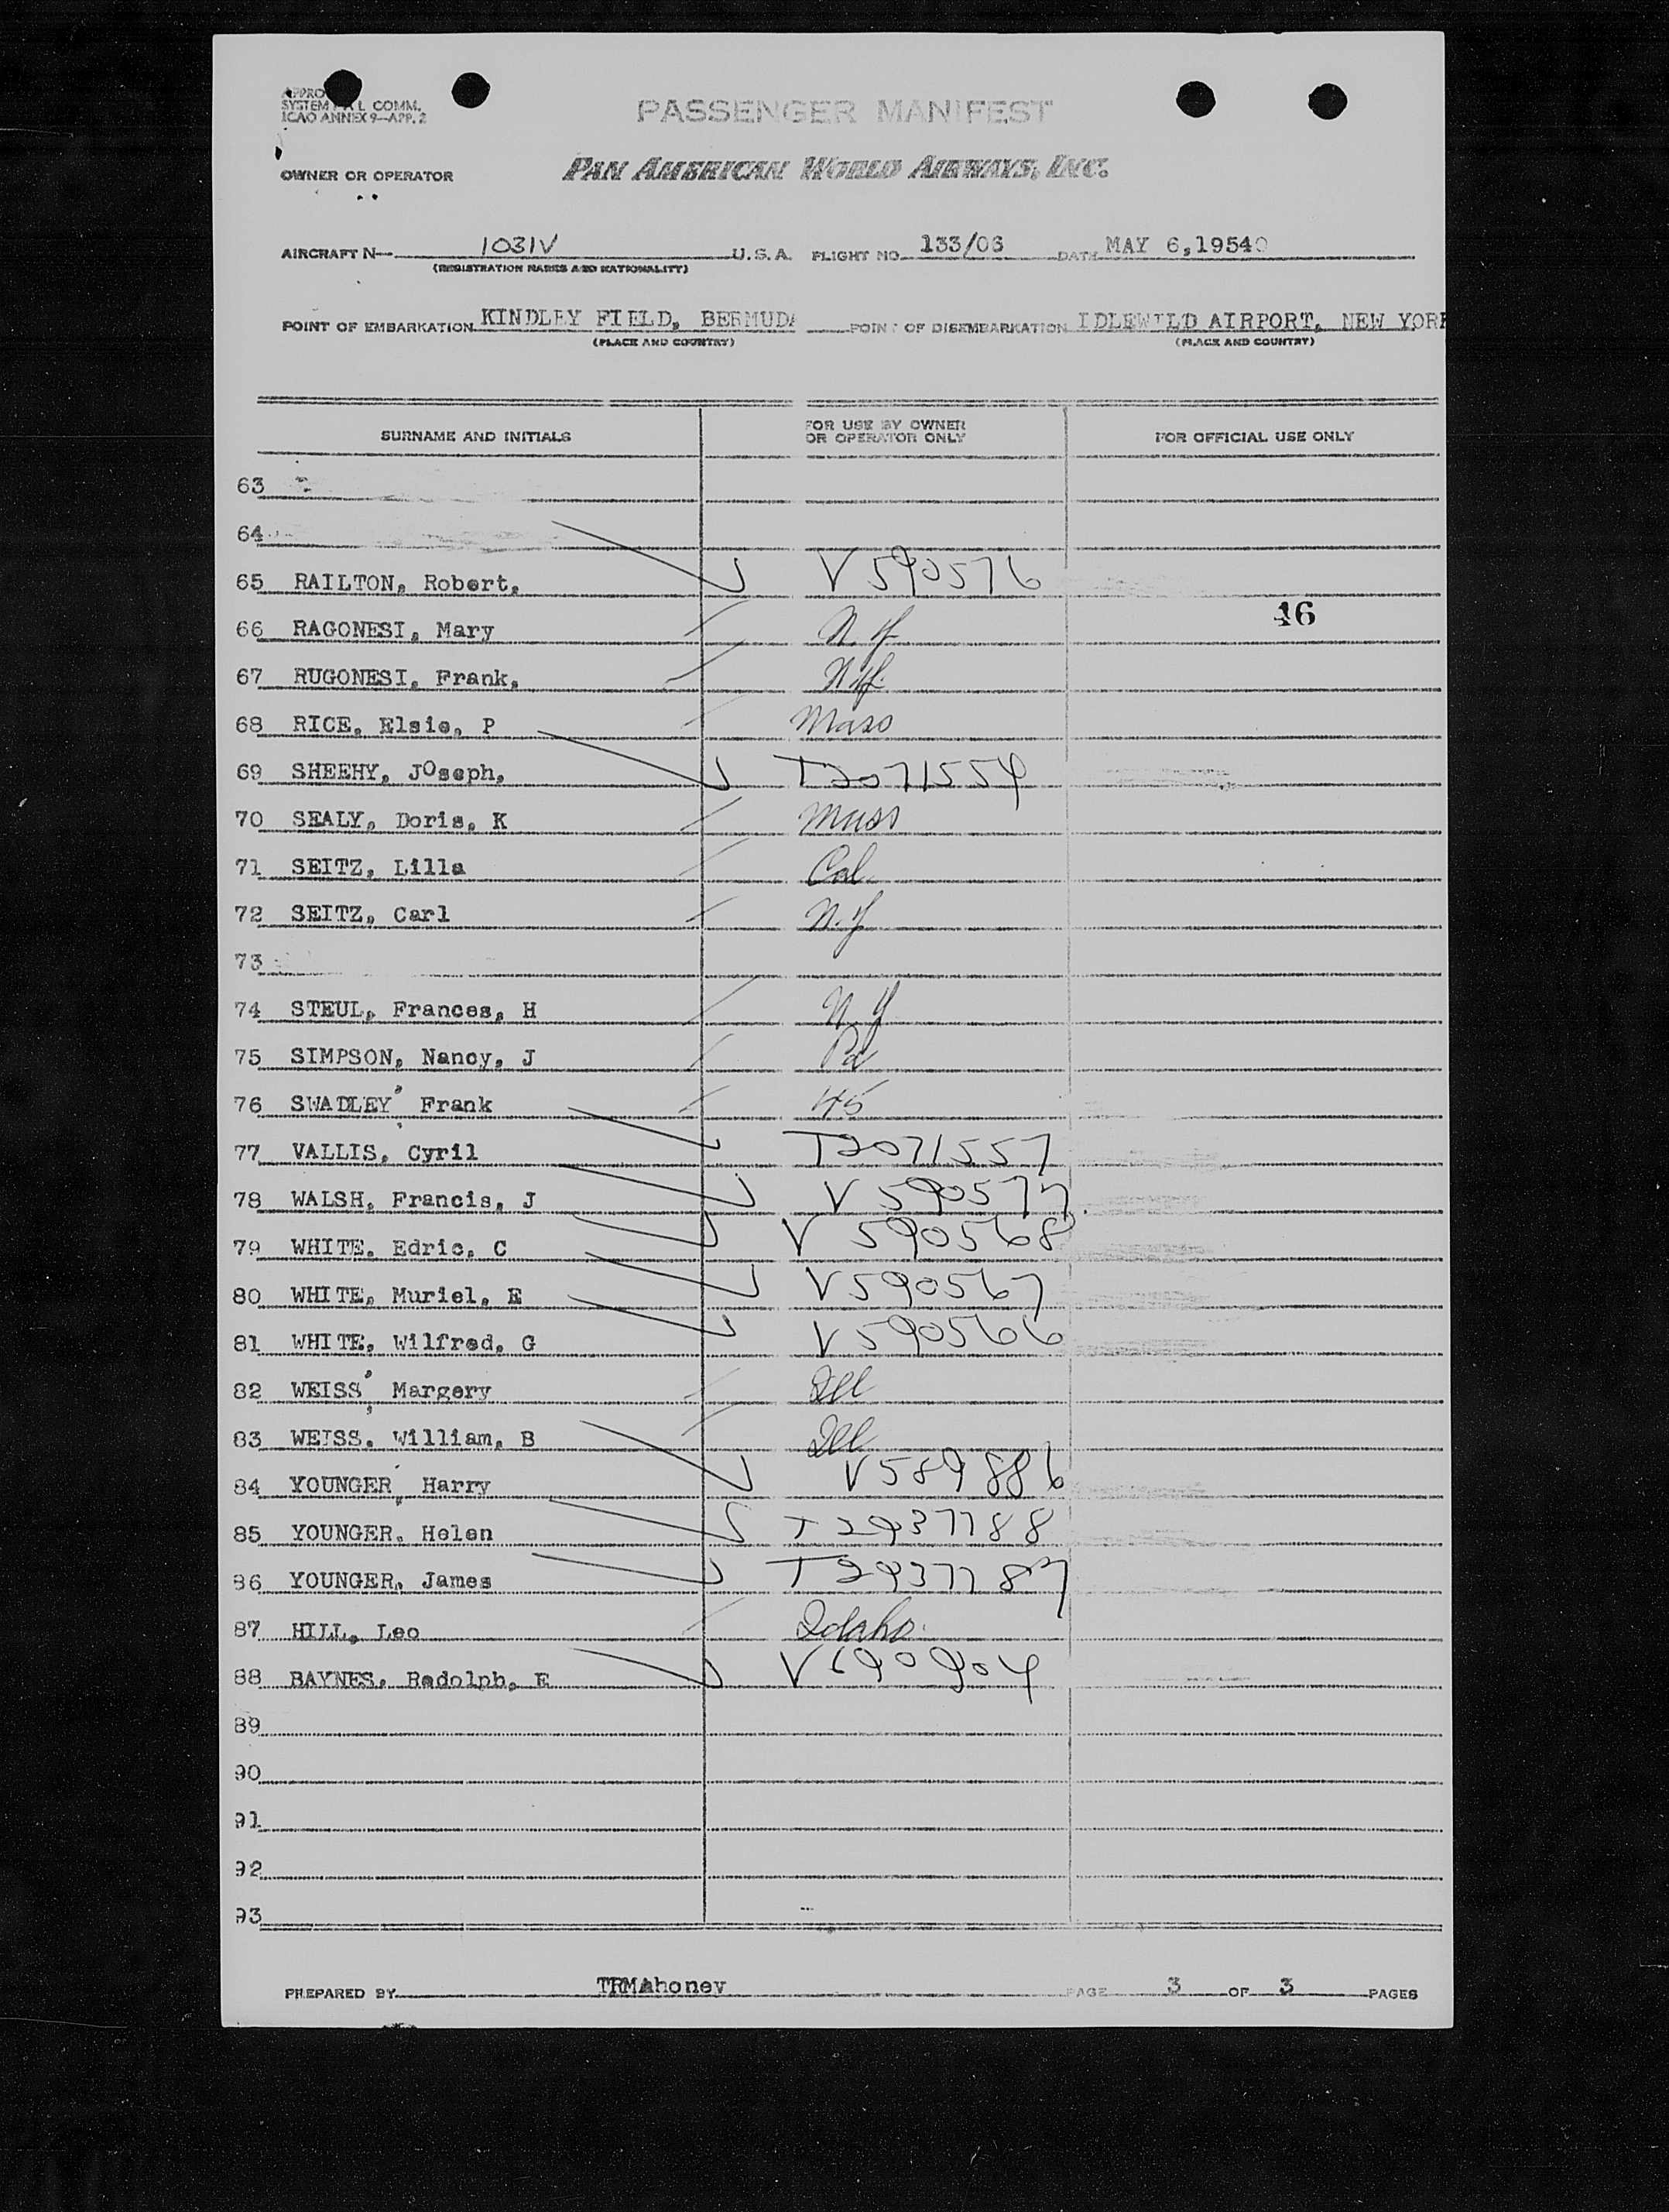 APPRO
SYSTEM L COMM.
ICAO ANNEX 9—APP. 2
PASSENGER MANIFEST
OWNER OR OPERATOR PAN AMERICAN WORLD AIRWAYS, INC.
AIRCRAFT N— 1031V U.S.A. FLIGHT NO. 133/06 DATE MAY 6,1954
(REGISTRATION MARKS AND NATIONALITY)
POINT OF EMBARKATION KINDLEY FIELD, BERMUDA POINT OF DISEMBARKATION IDLEWILD AIRPORT, NEW YORK
(PLACE AND COUNTRY) (PLACE AND COUNTRY)
SURNAME AND INITIALS FOR USE BY OWNER OR OPERATOR ONLY FOR OFFICIAL USE ONLY
63
64
65 RAILTON, Robert, V 590576
66 RAGONESI, Mary N.Y 46
67 RUGONESI, Frank, N.Y.
68 RICE, Elsie, P Mass
69 SHEEHY, JOseph, T2071554
70 SEALY, Doris, K Mass
71 SEITZ, Lilla Cal.
72 SEITZ, Carl N.Y
73
74 STEUL, Frances, H N.Y
75 SIMPSON, Nancy, J Pa
76 SWADLEY, Frank
77 VALLIS, Cyril T2071557
78 WALSH, Francis, J V 590577
79 WHITE, Edric, C V 590568
80 WHITE, Muriel, E V590567
81 WHITE, Wilfred, G V590566
82 WEISS, Margery Ill
83 WEISS, William, B Ill
84 YOUNGER, Harry V589886
85 YOUNGER, Helen T2937788
86 YOUNGER, James T2937787
87 HILL, Leo Idaho.
88 BAYNES, Radolph, E V690904
89
90
91
92
93
PREPARED BY TRMAhoney PAGE 3 OF 3 PAGES